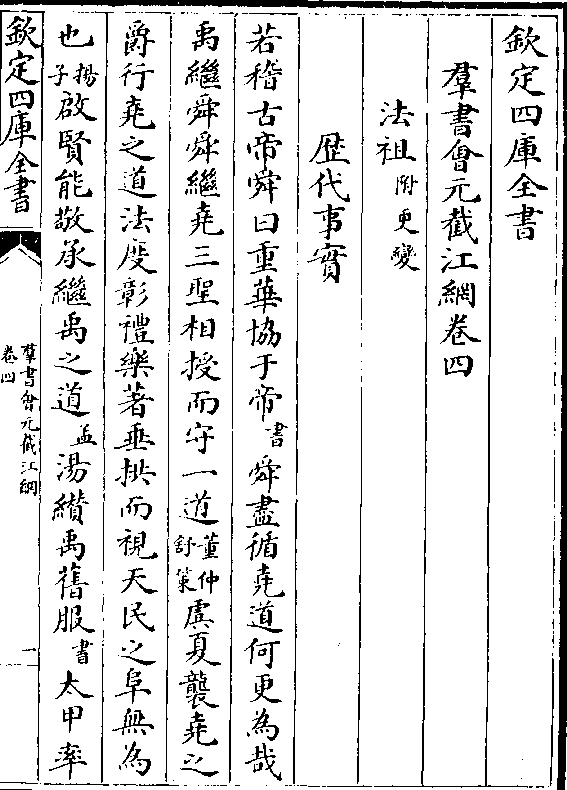 欽定四庫全書
羣書會元截江網卷四
法祖附更變
歴代事實
若稽古帝舜曰重華協于帝書舜盡循堯道何更為哉
禹繼舜舜繼堯三聖相授而守一道董仲舒策虞夏襲堯之
爵行堯之道法度彰禮樂著垂拱而視天民之阜無為
也揚子啟賢能敬承繼禹之道孟湯纘禹舊服書太甲率
欽定四庫全書
羣書會元截江網
卷四
一